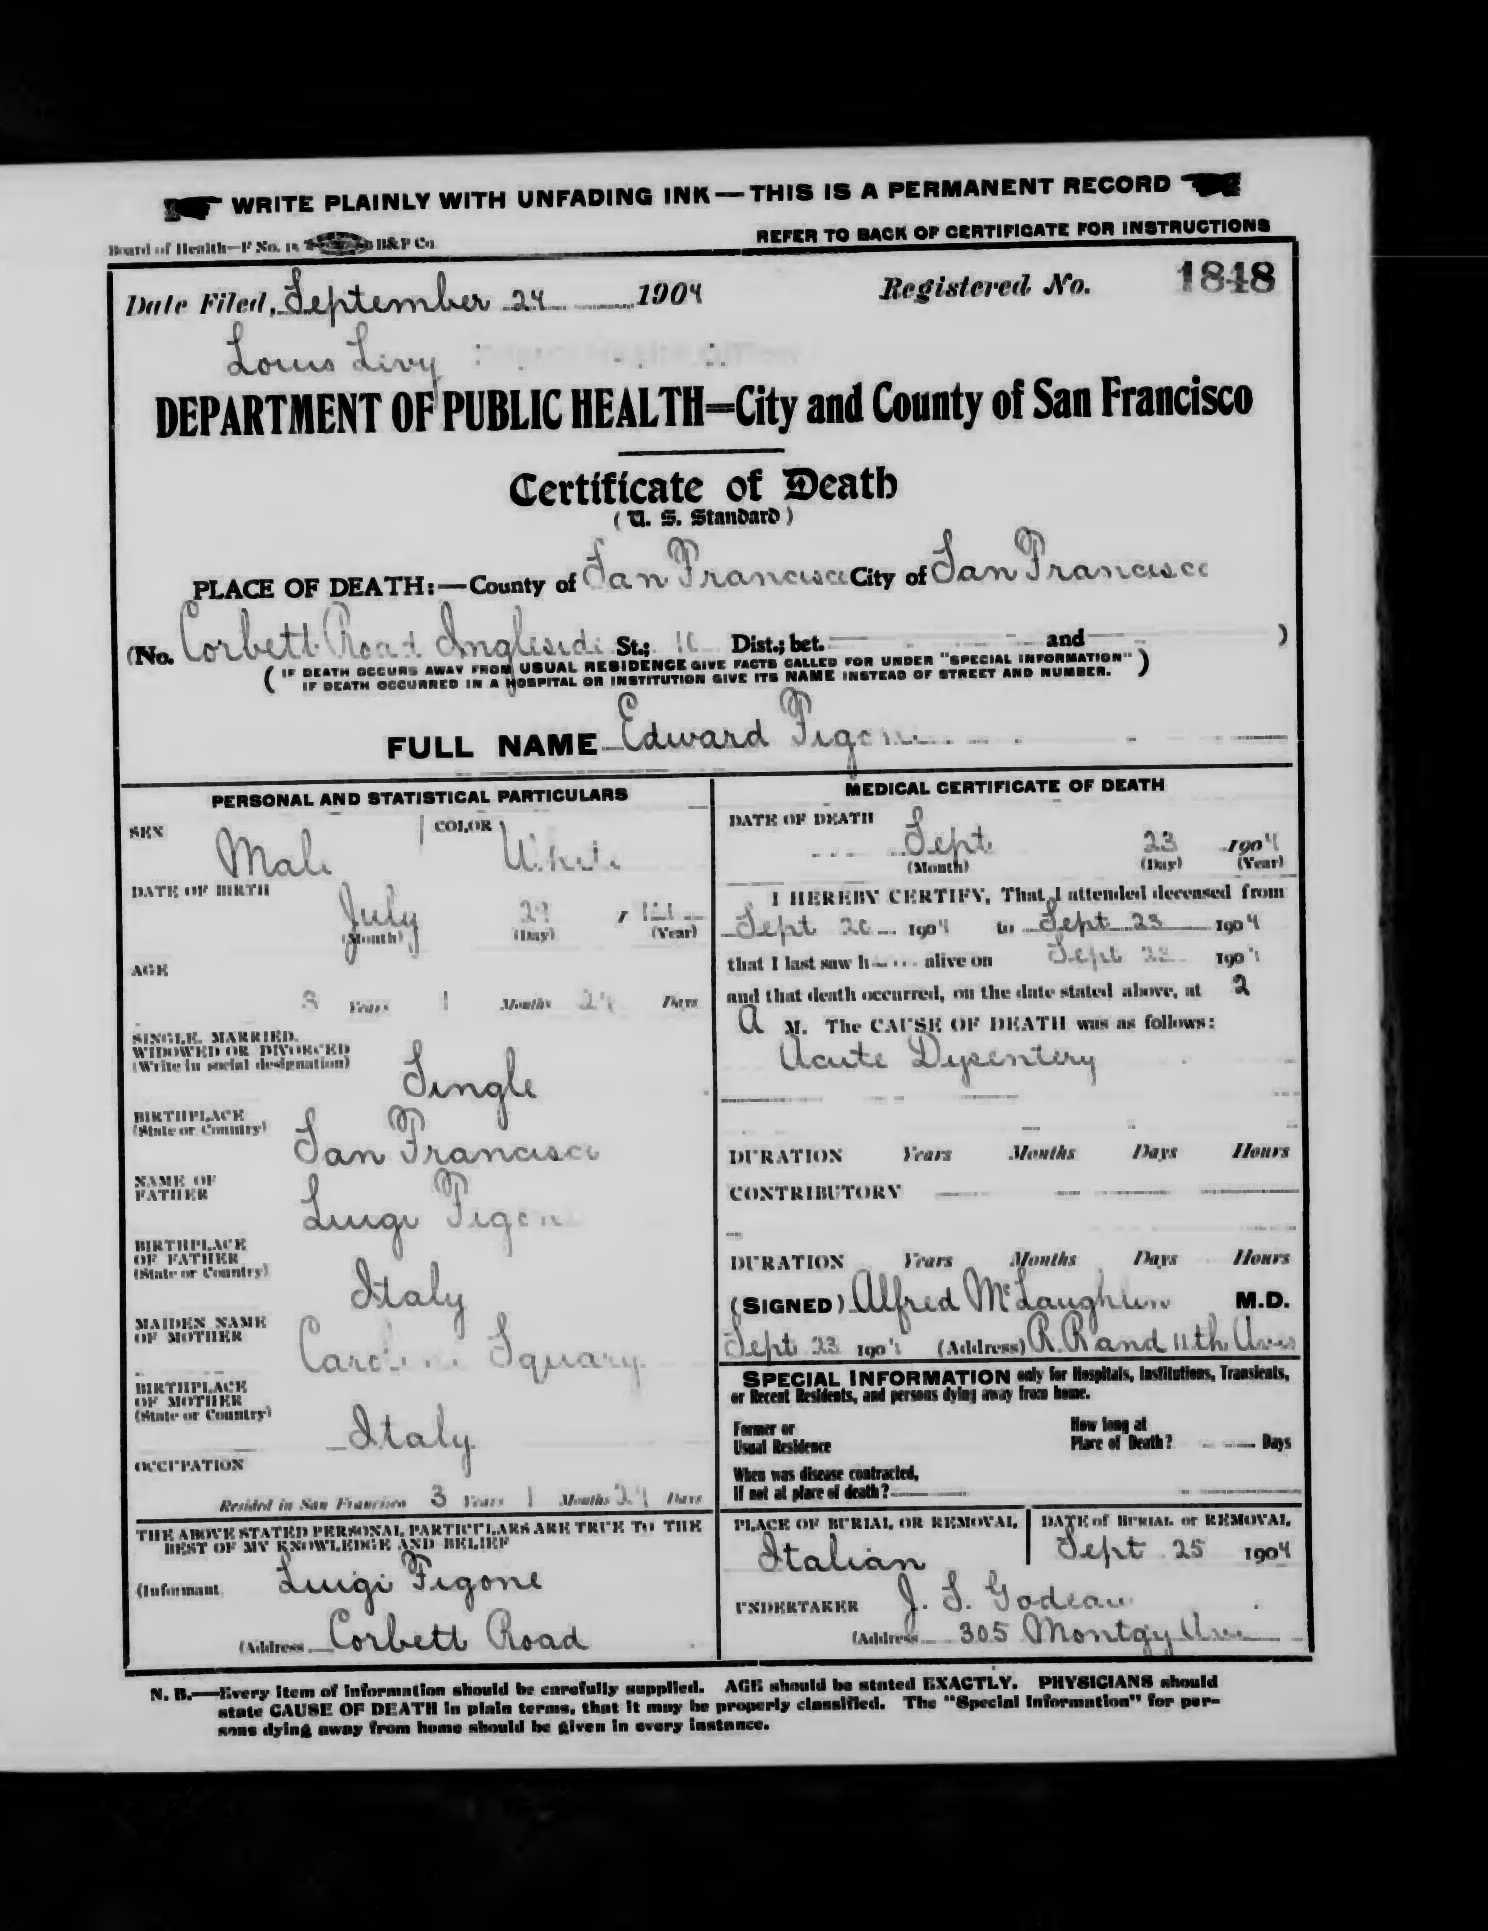 WRITE PLAINLY WITH UNFADING INK—THIS IS A PERMANENT RECORD
Board of Health—F No. 15 B&P Co
REFER TO BACK OF CERTIFICATE FOR INSTRUCTIONS
Date Filed, September 24 1904 Registered No. 1848
Louis Levy
DEPARTMENT OF PUBLIC HEALTH=City and County of San Francisco
Certificate of Death
(U. S. Standard)
PLACE OF DEATH:—County of San Francisco City of San Francisco
(No. Corbett Road Ingleside St.; Dist.; bet. and )
(IF DEATH OCCURS AWAY FROM USUAL RESIDENCE GIVE FACTS CALLED FOR UNDER "SPECIAL INFORMATION"
IF DEATH OCCURRED IN A HOSPITAL OR INSTITUTION GIVE ITS NAME INSTEAD OF STREET AND NUMBER.)
FULL NAME Edward Figone
PERSONAL AND STATISTICAL PARTICULARS
SEX Male COLOR White
DATE OF BIRTH
July
(Month) (Day) (Year)
AGE
3 Years 1 Months 24 Days
SINGLE, MARRIED,
WIDOWED OR DIVORCED
(Write in social designation)
Single
BIRTHPLACE
(State or Country)
San Francisco
NAME OF
FATHER
Luigi Figone
BIRTHPLACE
OF FATHER
(State or Country)
Italy
MAIDEN NAME
OF MOTHER
Caroline Squary
BIRTHPLACE
OF MOTHER
(State or Country)
Italy
OCCUPATION
Resided in San Francisco 3 Years 1 Months 24 Days
THE ABOVE STATED PERSONAL PARTICULARS ARE TRUE TO THE
BEST OF MY KNOWLEDGE AND BELIEF
(Informant Luigi Figone
(Address Corbett Road
MEDICAL CERTIFICATE OF DEATH
DATE OF DEATH
Sept 23 1904
(Month) (Day) (Year)
I HEREBY CERTIFY, That I attended deceased from
Sept 20 1904 to Sept 23 1904
that I last saw h alive on Sept 22 1904
and that death occurred, on the date stated above, at 2
A M. The CAUSE OF DEATH was as follows:
Acute Dysentery
DURATION Years Months Days Hours
CONTRIBUTORY
DURATION Years Months Days Hours
(SIGNED) Alfred McLaughlin M.D.
Sept 23 1904 (Address) R. R. and 11th Aves
SPECIAL INFORMATION only for Hospitals, Institutions, Transients,
or Recent Residents, and persons dying away from home.
Former or
Usual Residence
How long at
Place of Death? Days
When was disease contracted,
If not at place of death?
PLACE OF BURIAL OR REMOVAL
Italian
DATE of BURIAL or REMOVAL
Sept 25 1904
UNDERTAKER J. S. Godeau
(Address 305 Montgy Ave
N. B.—Every item of information should be carefully supplied. AGE should be stated EXACTLY. PHYSICIANS should
state CAUSE OF DEATH in plain terms, that it may be properly classified. The "Special Information" for per-
sons dying away from home should be given in every instance.